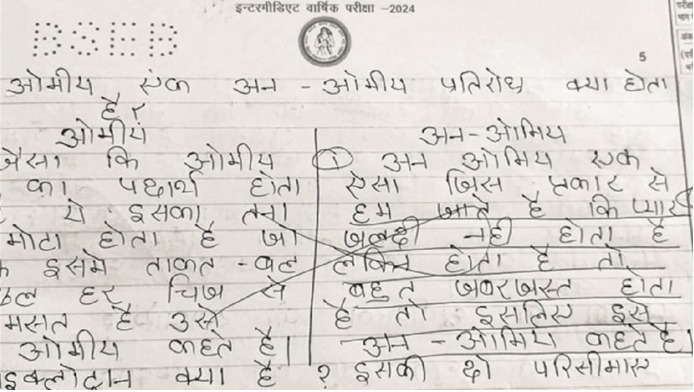 इन्टरमीडिएट वार्षिक परीक्षा -2024
BSEB
5
ओमीय एंक अन - ओमीय प्रतिरोध क्या होता
है?
ओमीय
जैसा कि ओमीय
का पदार्थ होता
ये इसका तना
मोटा होता है जो
इसमे ताकत - वल
हर चिज से
मसत है उसे
ओमीय कहते है।
अन - ओमिय
① अन ओमिय एक
ऐसा जिस प्रकार से
हम जाते है कि प्यार
जलदी नही होता है
लेकिन होता है तो
बहुत जबरजस्त होता
है तो इसलिए इसे
अन - ओमिय कहते है।
क्या है ? इसकी दो परिसीमाए